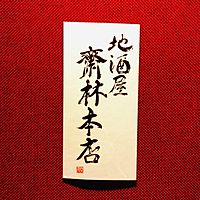 地酒屋
齋林本店